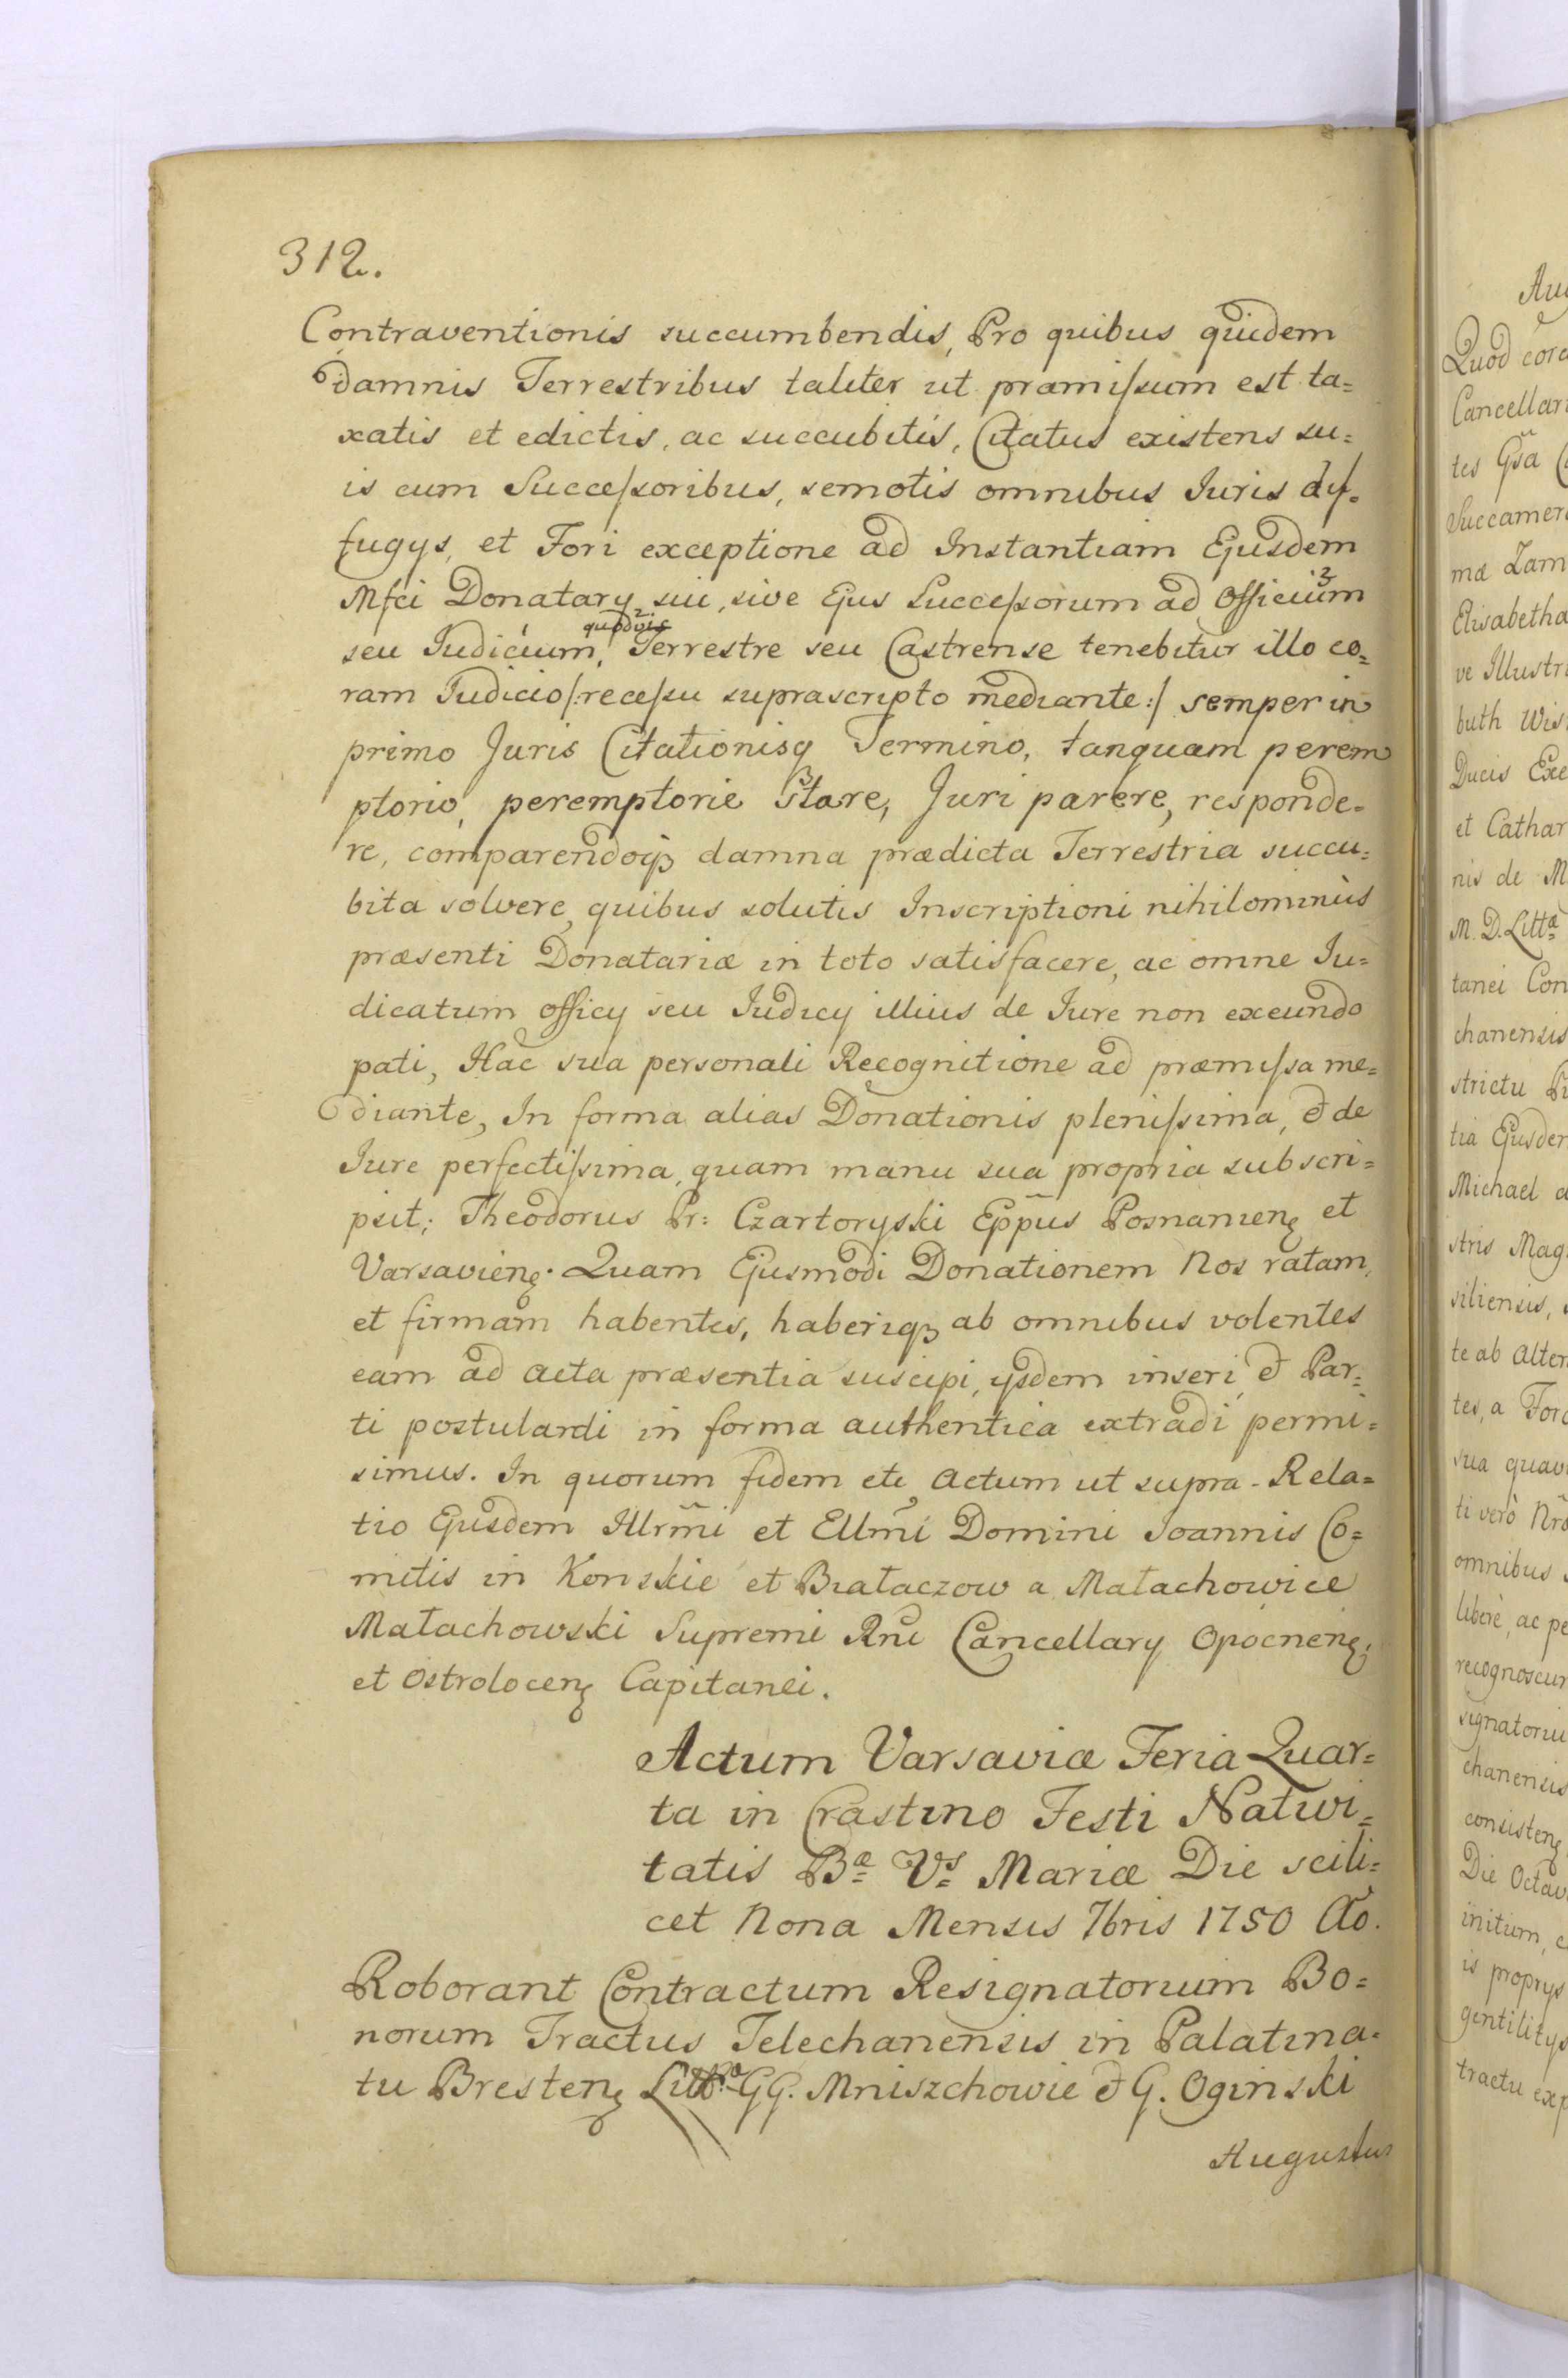 312.
Contraventionis succumbendis, Pro quibus quidem
damnis Terrestribus taliter ut præmiſsum est ta=
xatis et edictis, ac succubitis, Citatus existens su=
is cum Succeſsoribus, semotis omnibus Iuris dif=
fugys, et Fori exceptione ad Instantiam Ejusdem
Mfci Donatary sui, sive Ejus Succeſsorum ad Officium
quodvis
seu Iudicium, Terrestre seu Castrense tenebitur illo co=
ram Iudicio /:receſsu suprascripto mediante:/ semper in
primo Juris Citationisq Termino, tanquam perem
ptorio, peremptorie Stare, Juri parere, responde=
re, comparendoqȝ damna prædicta Terrestria succu=
bita solvere, quibus solutis Inscriptioni nihilominùs
præsenti Donatariæ in toto satisfacere, ac omne Iu=
dicatum officy seu Iudicy illius de Iure non exeundo
pati, Hac sua personali Recognitione ad præmiſsa me=
diante, In forma alias Donationis pleniſsima, & de
Iure perfectiſsima, quam manu sua propria subscri=
psit; Theodorus Pr: Czartoryski Eppus Posnanienȩ et
Varsavienȩ. Quam Ejusmodi Donationem Nos ratam,
et firmam habentes, haberiqȝ ab omnibus volentes
eam ad acta præsentia suscipi, ysdem inseri, & Par=
ti postulanti in forma authentica extradi permi=
simus. In quorum fidem etc Actum ut supra - Rela=
tio Ejusdem Illrm̃i et Ellm̃i Domini Joannis Co=
mitis in Konskie et Białaczow a Małachowice
Małachowski Supremi Rni Cancellary Opocnenȩ,
et Ostrolocenȩ Capitanei.
Actum Varsaviæ Feria Quar=
ta in Crastino Festi Nativi=
tatis Bæ Vs Mariæ Die scili=
cet Nona Mensis 7bris 1750 Ao.
Roborant Contractum Resignatorium Bo=
norum Tractus Telechanensis in Palatina=
tu Brestenȩ Littæ GG. Mniszchowie & G. Oginski
Augustus
Quod cora
Cancellari
tes Gsa
Succamer
mæ Zam
Elisabetha
ve Illustri
buth Wis
Ducis Exe
et Cathar
nis de M
M. D. Littæ
tanei Con
chanensis
strictu Pi
tia Ejusder
Michael a
stris Mag
siliensis,
te ab alter
tes, a Foro
sua quavi
ti verò Nro
omnibus
liberè, ac pe
recognoscun
signatoriu
chanensis
consistenȩ
Die Octav
initum, c
is proprys
gentilitys
tractu exp